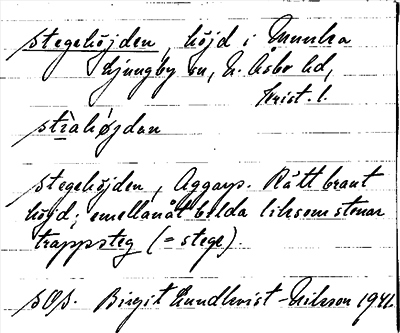 Stegehöjden, höjd i Munka
Ljungby sn, N. Åsbo hd,
Krist. l.
stìahöjdan
Stegehöjden, Aggarps. Rätt brant
höjd; emellanåt bilda liksom stenar
trappsteg (= stege).
SOS. Birgit Lundkvist-Nilsson 1941.